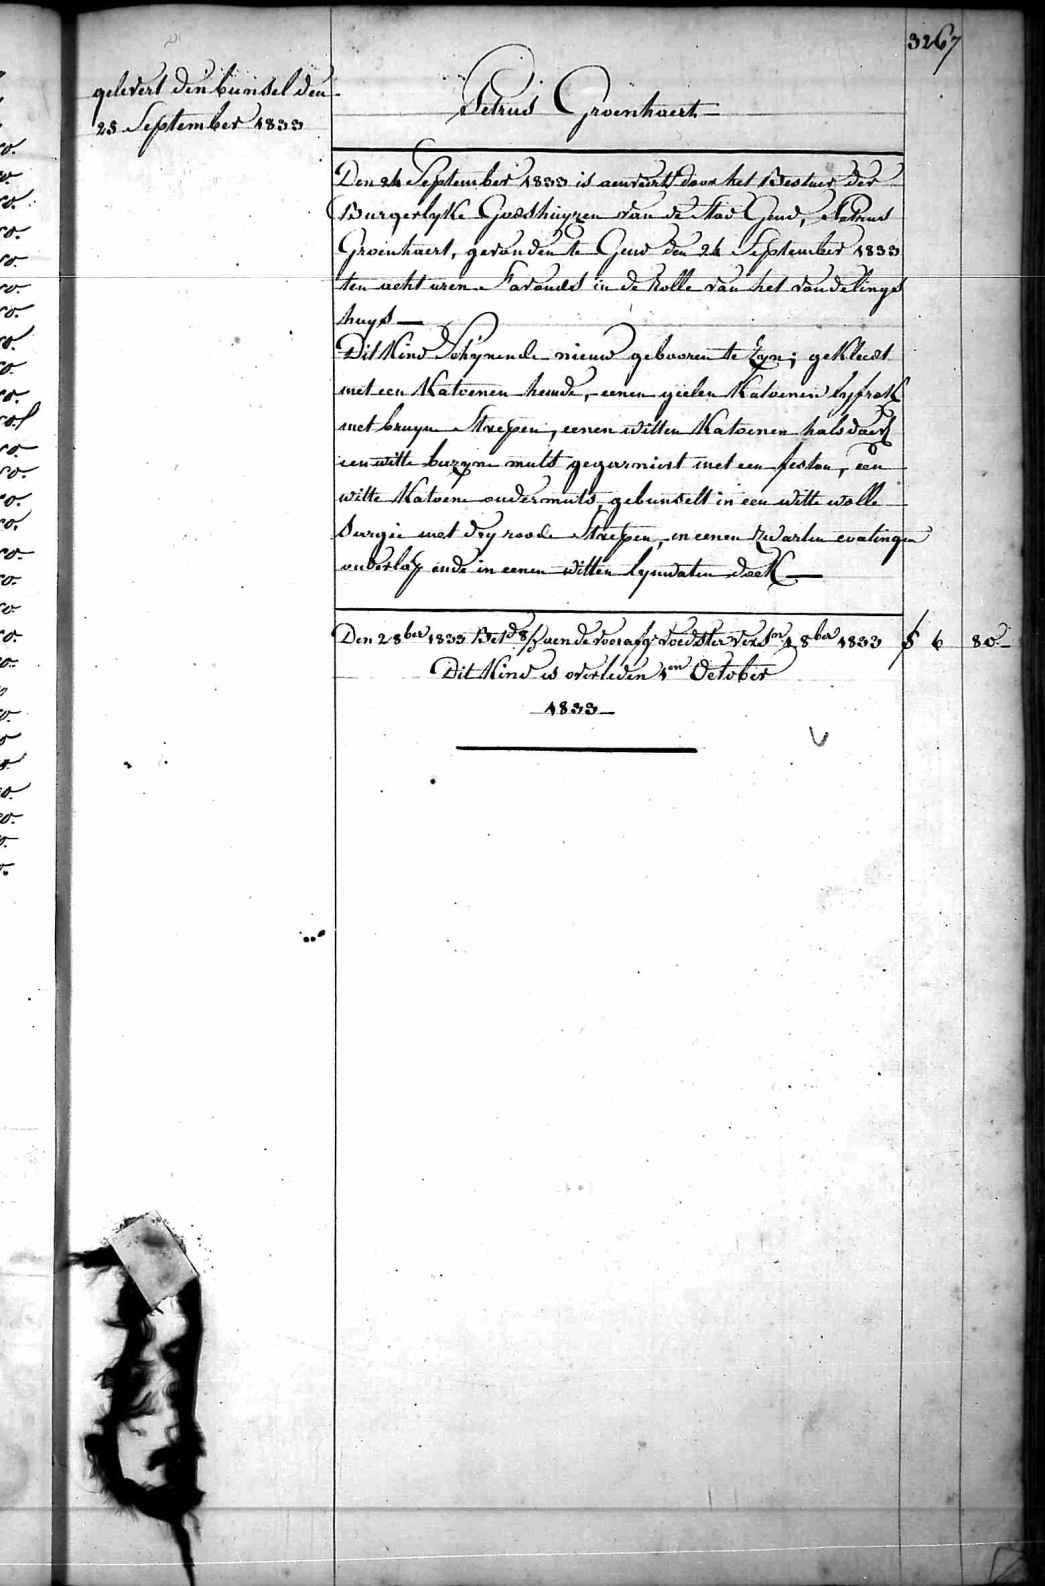 3267
gelevert den bunsel den
25 September 1833
Petrus Groenhaert
Den 24 September 1833 is aenveert door het Bestuer der
Burgerlyke Godshuyzen van de Stad Gend, Petrus
Groenhaert, gevonden te Gend den 24 September 1833
ten acht uren S'avonds in de Rolle van het vondelings
huys
Dit Kind Schynende nieuw gebooren te Zyn; gekleed
met een Katoenen hemde, eenen gielen Katoenen lyfrok
met bruyn Strepen, eenen witten Katoenen halsdoek
een witte bazyne muts gegarniert met een feston, een
witte Katoene ondermuts, gebunselt in een witte wolle
Sargie met dry roode Strepen, en eenen Zwarten
onderlap ende in eenen witten lynwaten doek
Den 2 8ber 1833 Bet.d aen de voedster 1 8ber 1833 6 80
Dit Kind is overleden 1en October
1833